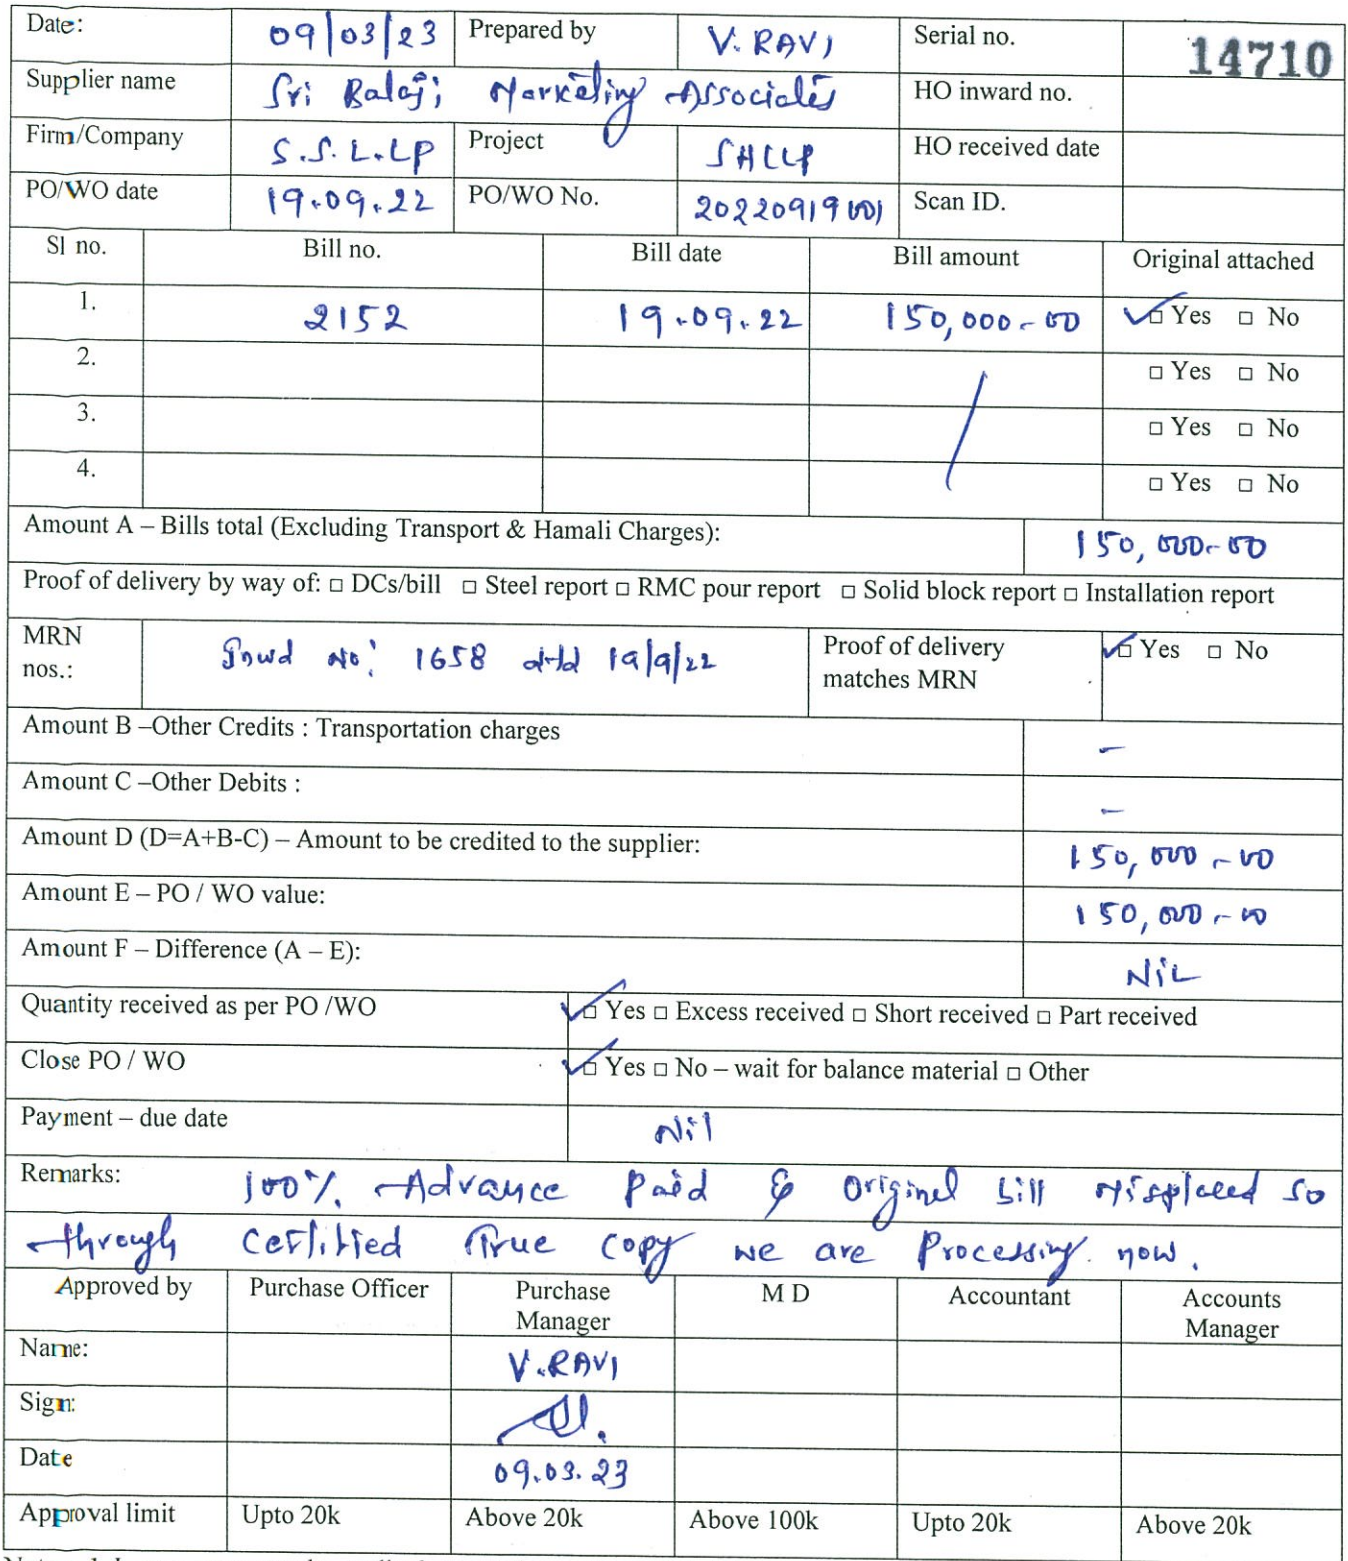 Date: 09/03/23 Prepared by V. RAVI Serial no. 14710
Supplier name Sri Balaji Marketing Associates HO inward no.
Firm/Company S.S.L.LP Project SHLLP HO received date
PO/WO date 19.09.22 PO/WO No. 20220919001 Scan ID.
Sl no. Bill no. Bill date Bill amount Original attached
1. 2152 19.09.22 150,000-00 ☑ Yes □ No
2. □ Yes □ No
3. □ Yes □ No
4. □ Yes □ No
Amount A – Bills total (Excluding Transport & Hamali Charges): 150,000-00
Proof of delivery by way of: □ DCs/bill □ Steel report □ RMC pour report □ Solid block report □ Installation report
MRN nos.: Inwd No: 1658 dtd 19/9/22 Proof of delivery matches MRN ☑ Yes □ No
Amount B –Other Credits : Transportation charges –
Amount C –Other Debits : –
Amount D (D=A+B-C) – Amount to be credited to the supplier: 150,000-00
Amount E – PO / WO value: 150,000-00
Amount F – Difference (A – E): NiL
Quantity received as per PO /WO ☑ Yes □ Excess received □ Short received □ Part received
Close PO / WO ☑ Yes □ No – wait for balance material □ Other
Payment – due date Nil
Remarks: 100% Advance Paid & Original bill Misplaced so
through Certified True copy we are Processing now.
Approved by Purchase Officer Purchase Manager M D Accountant Accounts Manager
Name: V.RAVI
Sign:
Date 09.03.23
Approval limit Upto 20k Above 20k Above 100k Upto 20k Above 20k